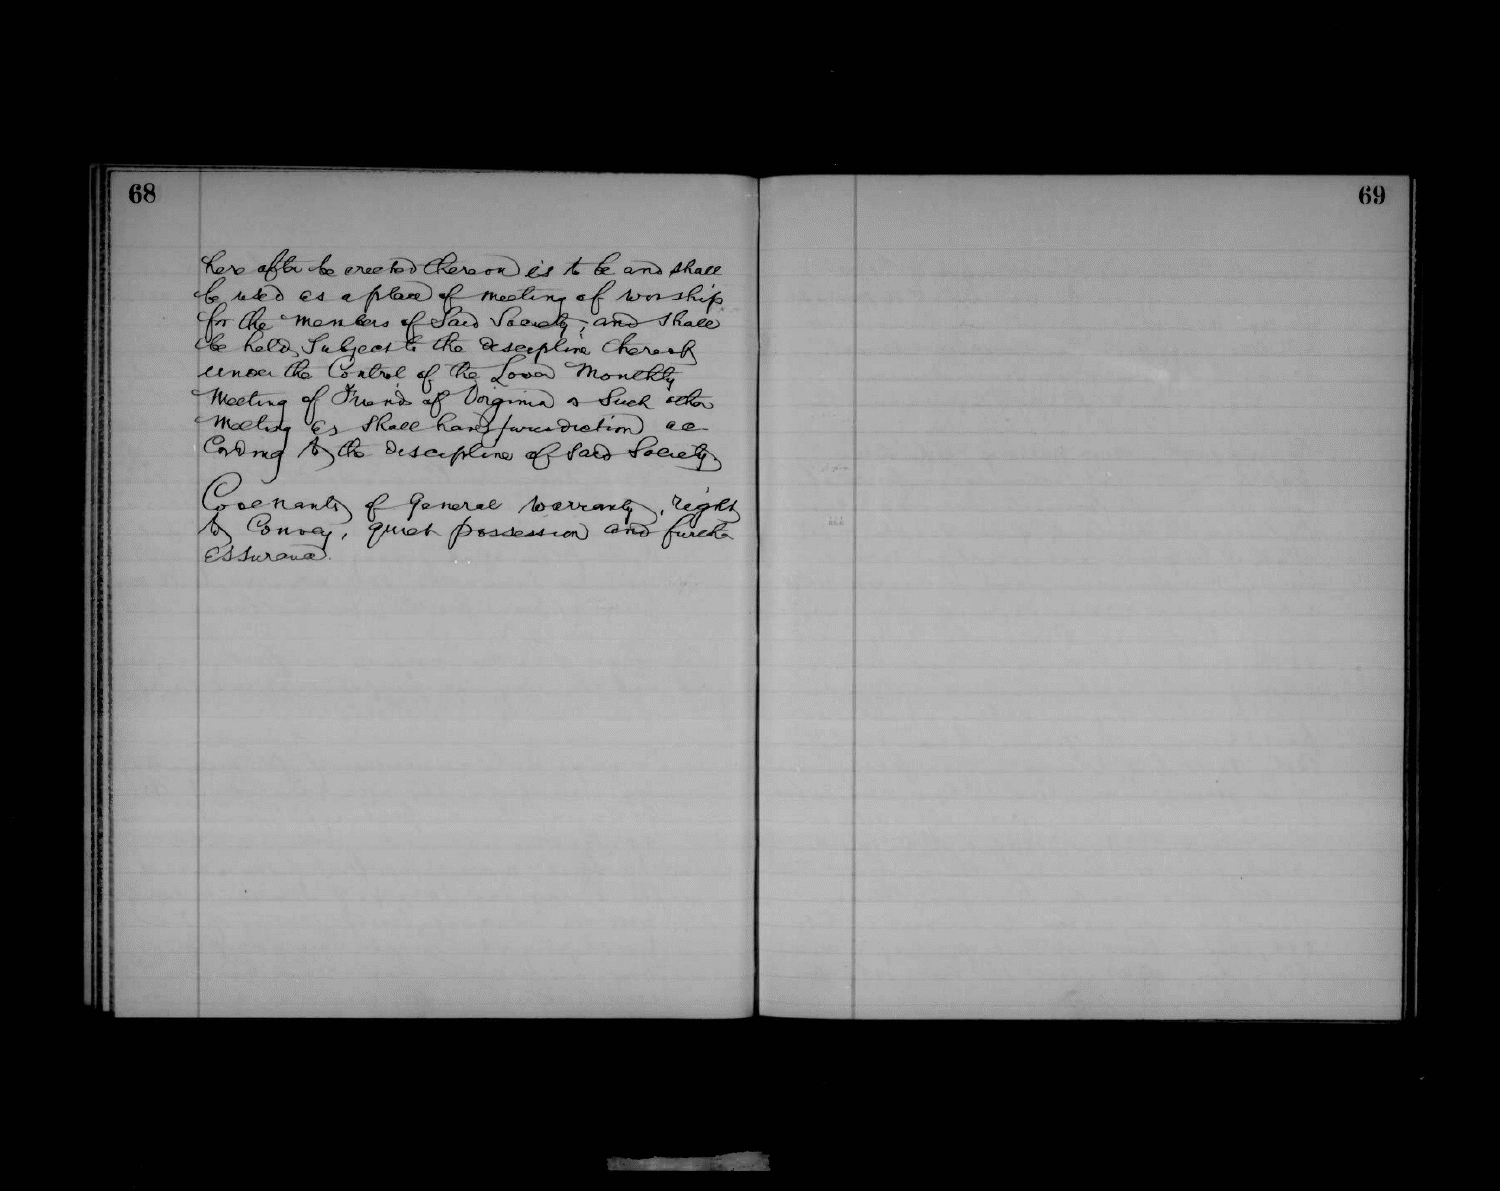 68
here after be erected thereon is to be and shall
be used as a place of meeting of worship
for the members of Said Society, and shall
be held Subject to the discipline thereof
under the Control of the Lower Monthly
Meeting of Friends of Virginia or Such other
Meeting as Shall have jurisdiction ac-
Cording to the discipline of Said Society.
Covenants of General Warranty, right
to Convey, quiet possession and further
assurance.
69